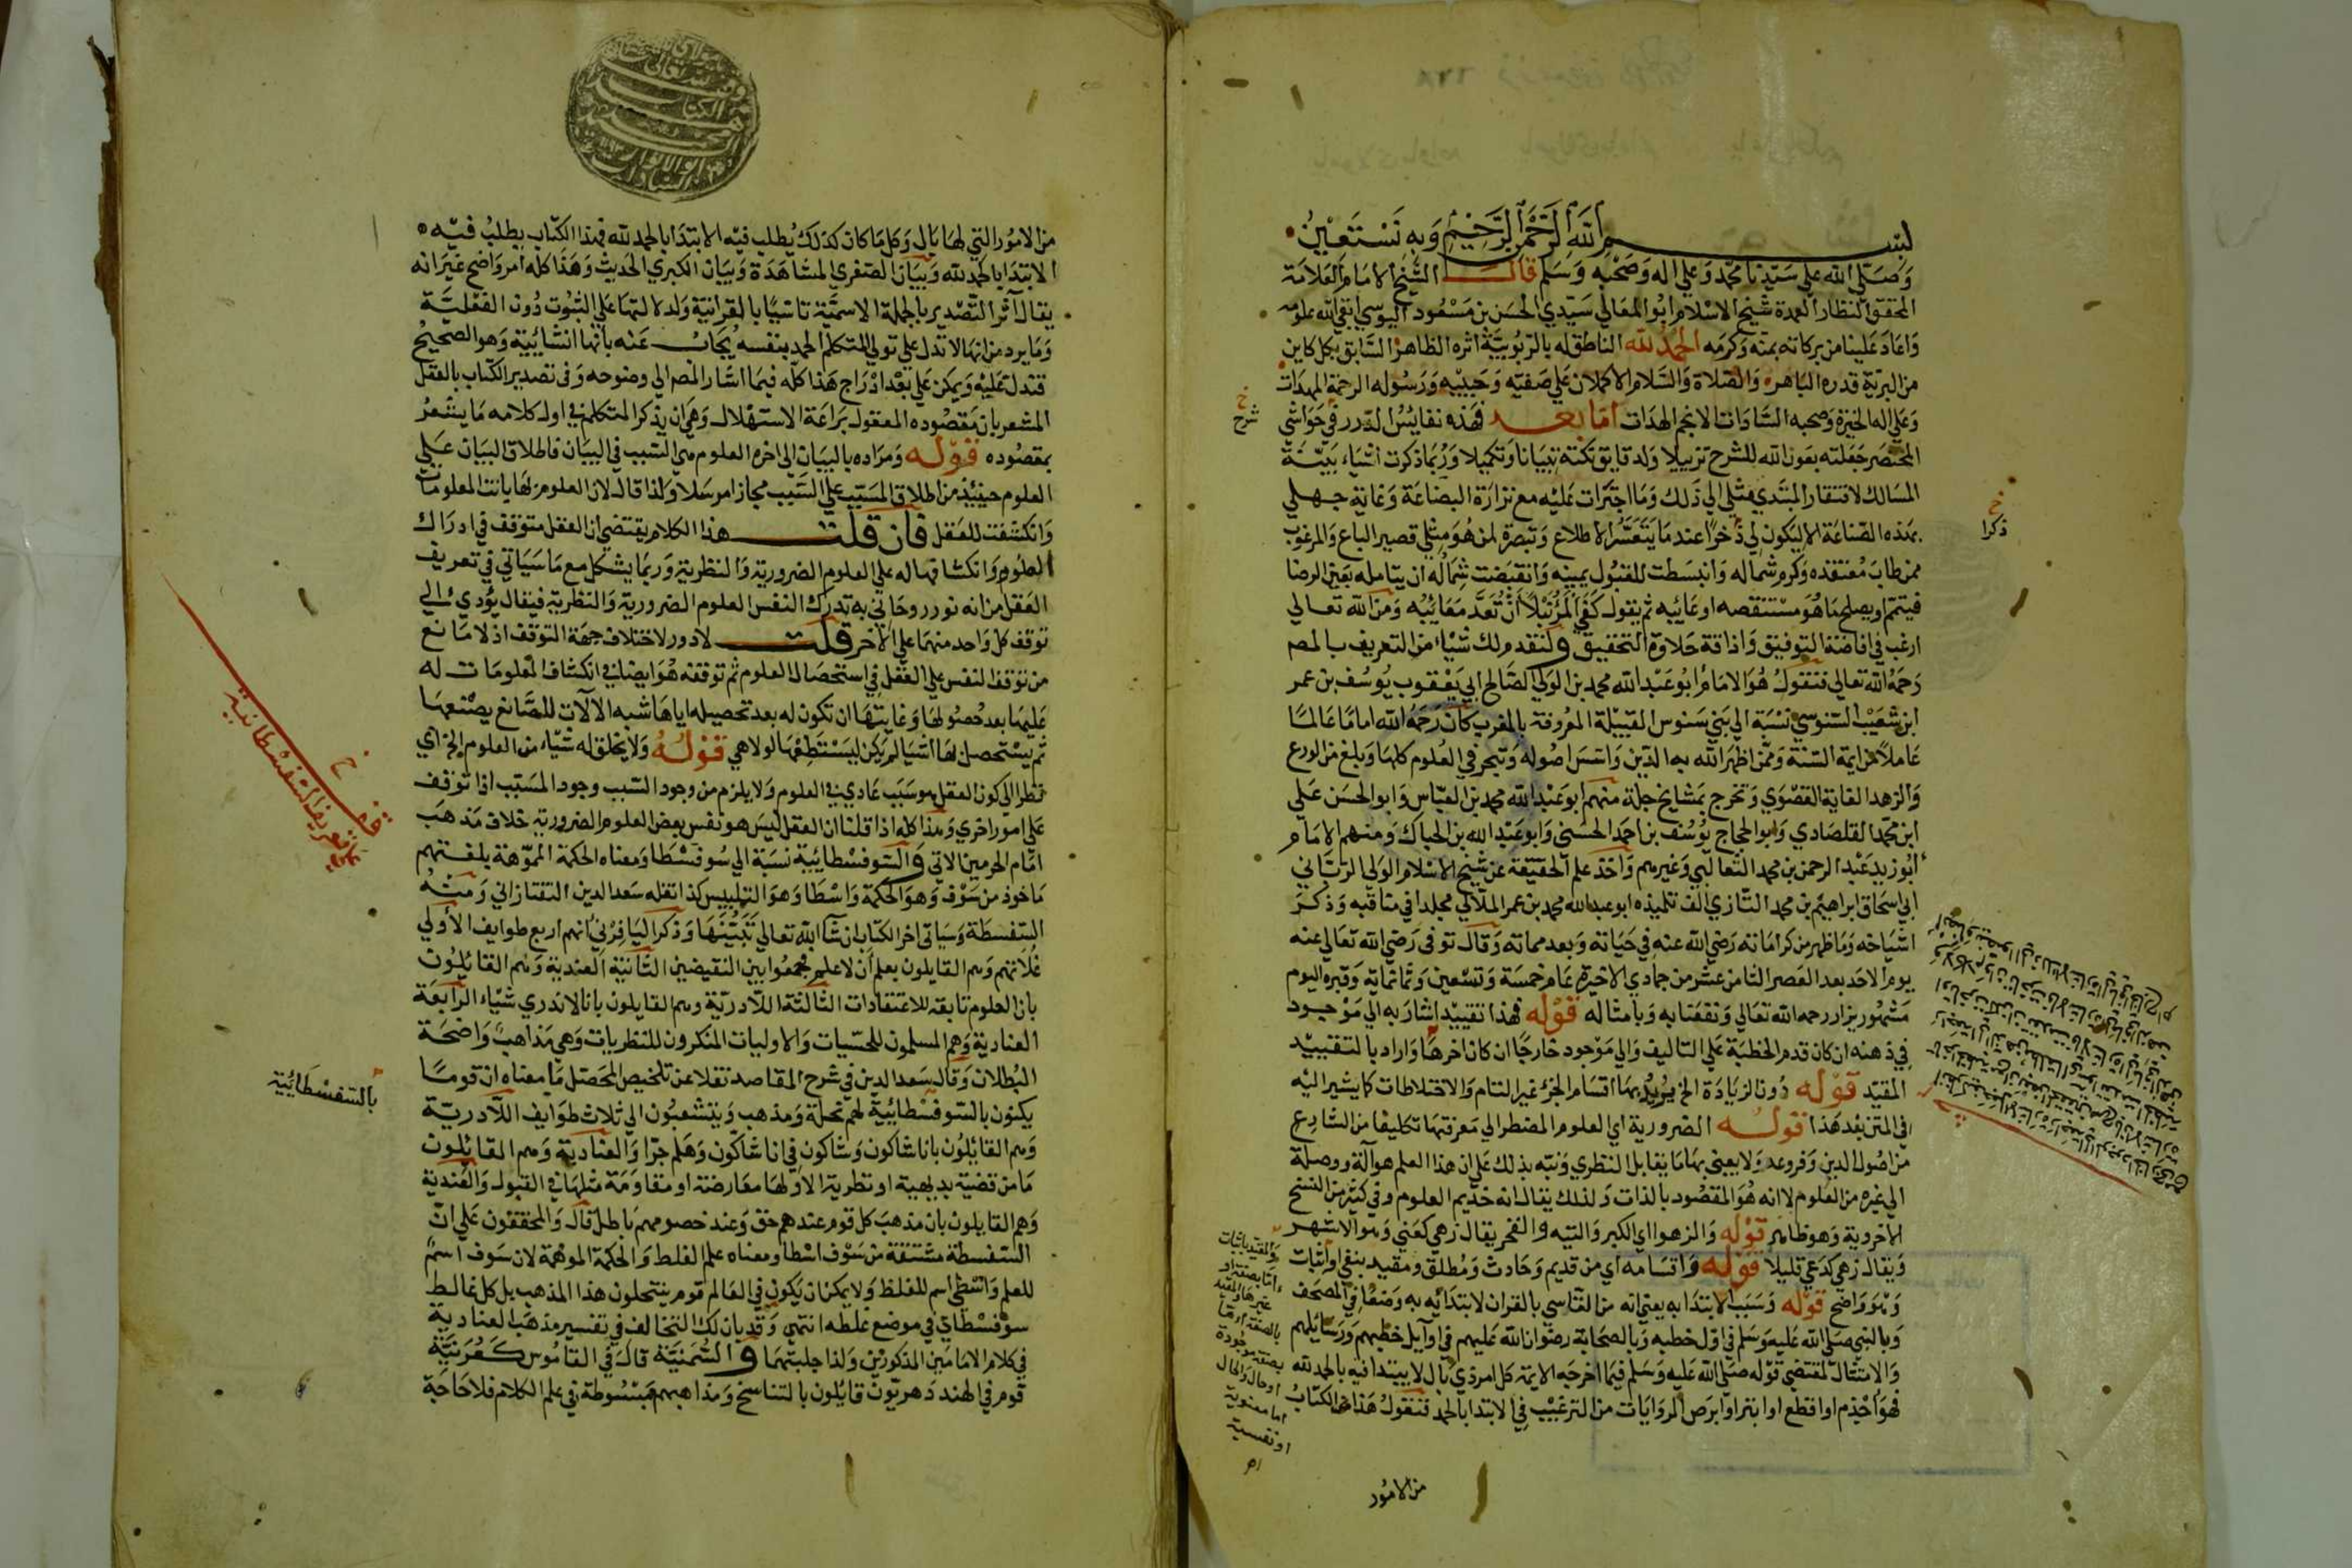 بسم الله الرحمن الرحيم وبه نستعين
وصلى الله على سيدنا محمد وعلى اله وصحبه وسلم قال الشيخ الامام العلامة
المحقق النظار العمدة شيخ الاسلام ابو المعالي سيدي الحسن بن مسعود اليوسي ابقى الله علومه
واعاد علينا من بركاته بمنه وكرمه الحمد لله الناطق له بالربوبية اثره الظاهر السابق بكل كاين
من البرية قدره الباهر والصلاة والسلام الاكملان على صفيه وحبيبه ورسوله الرحمة المهدات
وعلى اله الخيرة وصحبه السادات الانجم الهدات اما بعد فهذه نفايس الدرر في حواشي
خ
شرح
المختصر جعلته بعون الله للشرح تزييلا ولدقايق نكته تبيانا وتكميلا وربما ذكرت اشياء بينة
المسالك لافتقار المبتدي مثلي الي ذلك وما اجترات عليه مع نزارة البضاعة وغاية جهلي
بهذه الصناعة الا ليكون لي ذخرا عند ما يتعسر الاطلاع وتبصرة لمن هو مثلي قصير الباع والمرغوب
خ
ذكرا
ممن طاب معتقده وكرم شماله وانبسطت للقبول يمينه وانقبضت شماله ان يتامله بعين الرضا
فيتمم او يصلح ما هو مستنقصه او عائبه ثم يقول كفى المرء نبلا ان تعد معائبه ومن الله تعالي
ارغب في افاضة التوفيق واذاقة حلاوة التحقيق ولنقدم لك شيئا من التعريف بالمص
رحمه الله تعالي فنقول هو الامام ابو عبد الله محمد بن الولي الصالح ابي يعقوب يوسف بن عمر
ابن شعيب السنوسي نسبة الي بني سنوس القبيلة المعروفة بالمغرب كان رحمه الله اماما عالما
عاملا من ايمة السنة وممن اظهر الله به الدين واسس اصوله وتبحر في العلوم كلها وبلغ من الورع
والزهد الغاية القصوي وتخرج بمشايخ جلة منهم ابو عبد الله محمد بن العباس وابو الحسن علي
ابن محمد القلصادي وابو الحجاج يوسف بن احمد الحسني وابو عبد الله بن الحباك ومنهم الامام
ابو زيد عبد الرحمن بن محمد الثعالبي وغيرهم واخذ علم الحقيقة عن شيخ الاسلام الولي الرباني
ابي اسحاق ابراهيم بن محمد التازي الف تلميذه ابو عبد الله محمد بن عمر الملالي مجلدا في مناقبه وذكر
اشياخه وما ظهر من كراماته رضي الله عنه في حياته وبعد مماته وقال توفي رضي الله تعالي عنه
يوم الاحد بعد العصر الثامن عشر من جمادي الاخيرة عام خمسة وتسعين وثمانماية وقبره اليوم
مشهور يزار رحمه الله تعالي ونفعنا به وبامثاله قوله فهذا تقييد اشار به الي موجود
في ذهنه ان كان قدم الخطبة علي التاليف والي موجود خارجا ان كان اخرها واراد بالتقييد
المقيد قوله دون الزيادة الخ يريد بها اقسام الجزء غير التام والاختلاطات كما يشير اليه
في المتن بعد هذا قوله الضرورية اي العلوم المضطر الي معرفتها تكليفا من الشارع
من اصول الدين وفروعه ولا يعني بها ما يقابل النظري ونبه بذلك علي ان هذا العلم هو آلة ووصلة
الي غيره من العلوم لا انه هو المقصود بالذات ولذلك يقال انه خديم العلوم وفي كثير من النسخ
الاخروية وهو ظاهر قوله والزهو اي الكبر والتيه والفخر يقال زهي كعني وهو الاشهر
ويقال زهي كدعي قليلا قوله واقسامه اي من قديم وحادث ومطلق ومقيد بنفي او اثبات
وهو واضح قوله وسبب الابتدا به يعني انه من التاسي بالقران لابتدائه به وضعا في المصحف
وبالنبي صلي الله عليه وسلم في اول خطبه وبالصحابة رضوان الله عليهم في اوايل خطبهم ورسائلهم
والامتثال لمقتضي قوله صلي الله عليه وسلم فيما اخرجه الايمة كل امر ذي بال لا يبتدا فيه بالحمد لله
فهو اجذم او اقطع او ابتر او ابرص الروايات من الترغيب في الابتدا بالحمد فنقول هذا الكتاب
والمقيد باثبات
اما بصفة او
غيرها والمقيد
بالصفة اما
بصفة موجودة
او حال والحال
اما معنوية
او نفسية
اه
من الامور
من الامور التي لها بال وكل ما كان كذلك يطلب فيه الابتدا بالحمد لله فهذا الكتاب يطلب فيه
الابتدا بالحمد لله وبيان الصغري المشاهدة وبيان الكبري الحديث وهذا كله امر واضح غير انه
يقال آثر التصدير بالجملة الاسمية تاسيا بالقرانية ولدلالتها علي الثبوت دون الفعلية
وما يرد من انها لا تدل علي تولي المتكلم الحمد بنفسه يجاب عنه بانها انشائيية وهو الصحيح
فتدل عليه ويمكن علي بعد ادراج هذا كله فيما اشار المص الي وضوحه وفي تصدير الكتاب بالعقل
المشعر بان مقصوده المعقول براعة الاستهلال وهي ان يذكر المتكلم في اول كلامه ما يشعر
بمقصوده قوله ومراده بالبيان الي اخره العلوم هي السبب في البيان فاطلاق البيان علي
العلوم حينيذ من اطلاق المسبب علي السبب مجازا مرسلا ولذا قال لان العلوم بها بانت المعلومات
وانكشفت للعقل فان قلت هذا الكلام يقتضي ان العقل متوقف في ادراك
العلوم وانكشافها له علي العلوم الضرورية والنظرية وربما يشكل مع ما سياتي في تعريف
العقل من انه نور روحاني به تدرك النفس العلوم الضرورية والنظرية فيقال يؤدي الي
توقف كل واحد منهما علي الآخر قلت لا دور لاختلاف جهة التوقف اذ لا مانع
من توقف النفس علي العقل في استحصال العلوم ثم توقفه هو ايضا في انكشاف المعلومات له
عليها بعد حصولها وغايتها ان تكون له بعد تحصيله اياها شبه الآلات للصانع يصنعها
ثم يستحصل بها اشيا لم يكن ليستطعها لولا هي قوله ولا يخلق له شيء من العلوم الخ اي
نظرا الي كون العقل هو سبب عادي في العلوم ولا يلزم من وجود السبب وجود المسبب اذا توقف
علي امور اخري وهذا كله اذا قلنا ان العقل ليس هو نفس بعض العلوم الضرورية خلاف مذهب
امام الحرمين الاتي والسوفسطائيية نسبة الي سوفسطا ومعناه الحكمة المموهة بلغتهم
ماخوذ من سوف وهو الحكمة واسطا وهو التلبيس كذا نقله سعد الدين التفتازاني ومنه
السفسطة وسياتي اخر الكتاب ان شا الله تعالي تبيينها وذكر اليافرني انهم اربع طوايف الأولي
غلاتهم وهم القايلون بعلم ان لا علم فجمعوا بين النقيضين الثانية العندية وهم القائلون
بان العلوم تابعة للاعتقادات الثالثة اللادرية وهم القايلون بانا لا ندري شيئا الرابعة
العنادية وهم المسلمون للحسيات والاوليات المنكرون للنظريات وهي مذاهب واضحة
البطلان وقال سعد الدين في شرح المقاصد نقلا عن تلخيص المحصل ما معناه ان قوما
يكنون بالسوفسطائية لهم نحلة ومذهب ويتشعبون الي ثلاث طوايف اللادرية
بالسفسطائية
وهم القائلون بانا شاكون وشاكون في انا شاكون وهلم جرا والعنادية وهم القائلون
ما من قضية بديهية او نظرية الا ولها معارضة او مقاومة مثلها في القبول والعندية
وهم القايلون بان مذهب كل قوم عندهم حق وعند خصومهم باطل قال والمحققون علي ان
السفسطة مشتقة من سوف اسطا ومعناه علم الغلط والحكمة الموهمة لان سوف اسم
للعلم واسطي اسم للغلط ولا يمكن ان يكون في العالم قوم ينتحلون هذا المذهب بل كل غالط
سوفسطاي في موضع غلطه انتهي وقد بان لك التخالف في تفسير مذهب العنادية
في كلام الامامين المذكورين ولذا جلبتهما والسمنية قال في القاموس كعرنية
قوم في الهند دهريون قايلون بالتناسخ ومذاهبهم مبسوطة في علم الكلام فلا حاجة